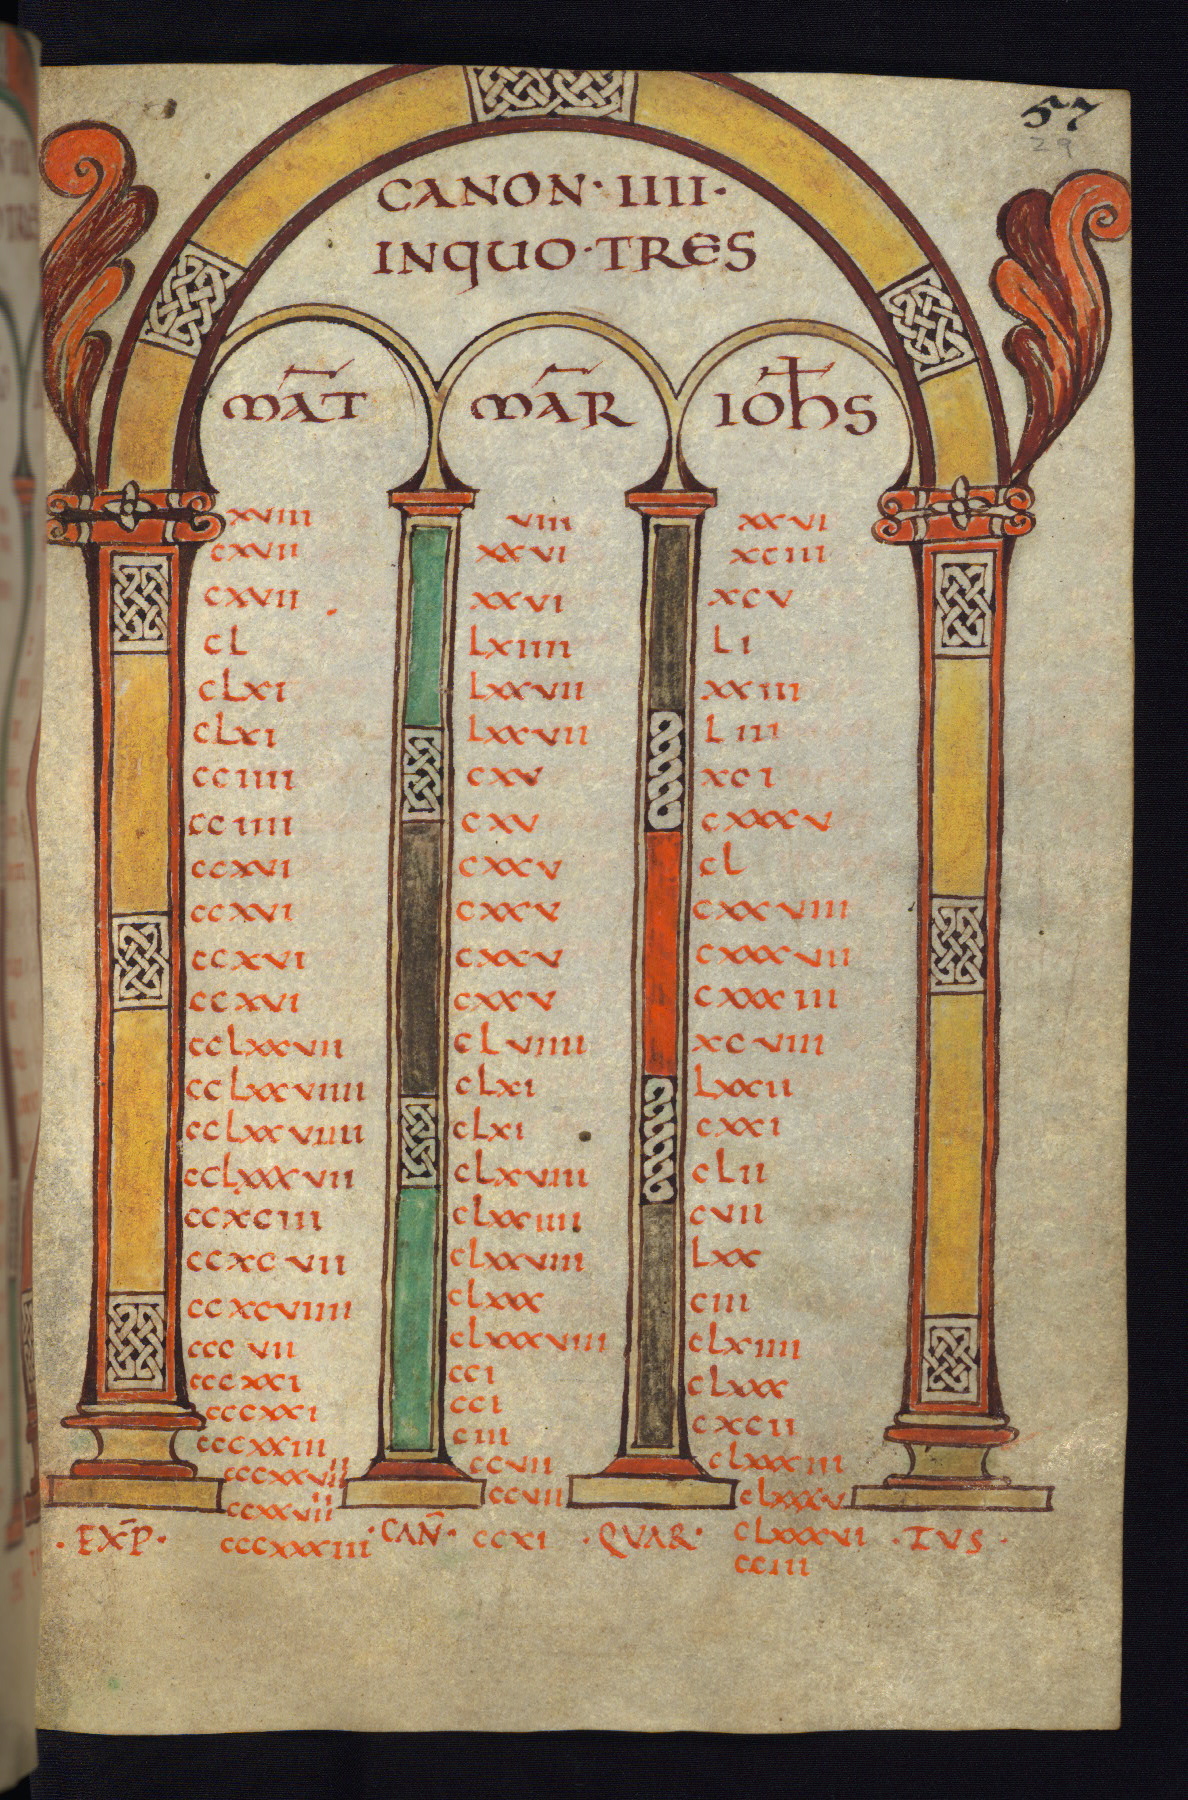 57
29
CANON · IIII ·
INQUO · TRES
MAT̄ MAR̄ IOHS̄
xviii viii xxvi
cxvii xxvi xciii
cxvii xxvi xcv
cl lxiiii li
clxi lxxvii xxiii
clxi lxxvii liii
cciiii cxv xci
cciiii cxv cxxxv
ccxvi cxxv cl
ccxvi cxxv cxxviii
ccxvi cxxv cxxxvii
ccxvi cxxv cxxxiii
cclxxvii clviiii xcviii
cclxxviiii clxi lxxii
cclxxviiii clxi cxxi
cclxxxvii clxviii clii
ccxciii clxxiiii cvii
ccxcvii clxxviii lxx
ccxcviiii clxxx ciii
cccvii clxxxviiii clxiiii
cccxxi cci clxxx
cccxxi cci cxcii
cccxxiii ciii clxxxiii
cccxxvii ccvii clxxxv
ccxxvii ccvii clxxxvi
cccxxxiii ccxi cciii
· EXP̄ · · CAN̄ · · QUAR · · TUS ·